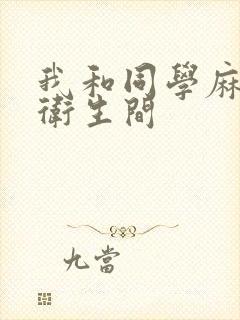 我和同學麻
衛生間
九當